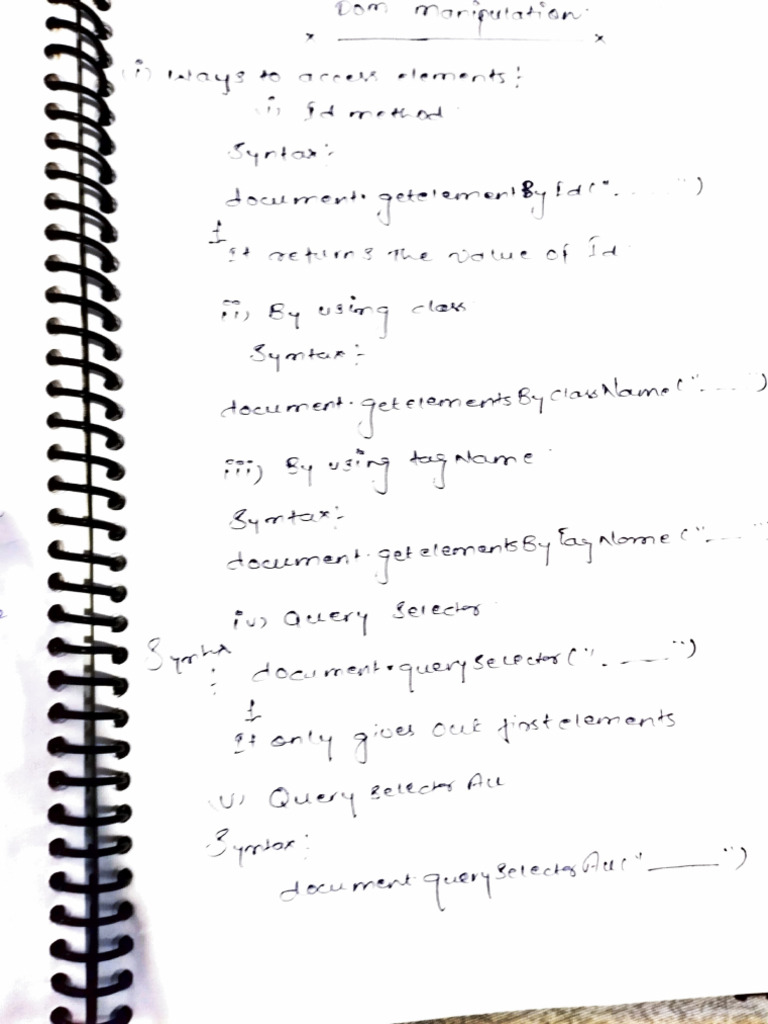 Dom Manipulation
x x
(i) Ways to access elements:
i) Id method
Syntax:
document.getelementById(". .....")
It returns the value of Id
ii) By using class
Syntax:-
document.getelementsByclassName("......")
iii) By using tag Name
Syntax:-
document.getelementsByTagName("......"
iv) Query Selector
Syntax: document.querySelector(". ____")
It only gives out first elements
v) Query Selector All
Syntax:
document.querySelectorAll("____")